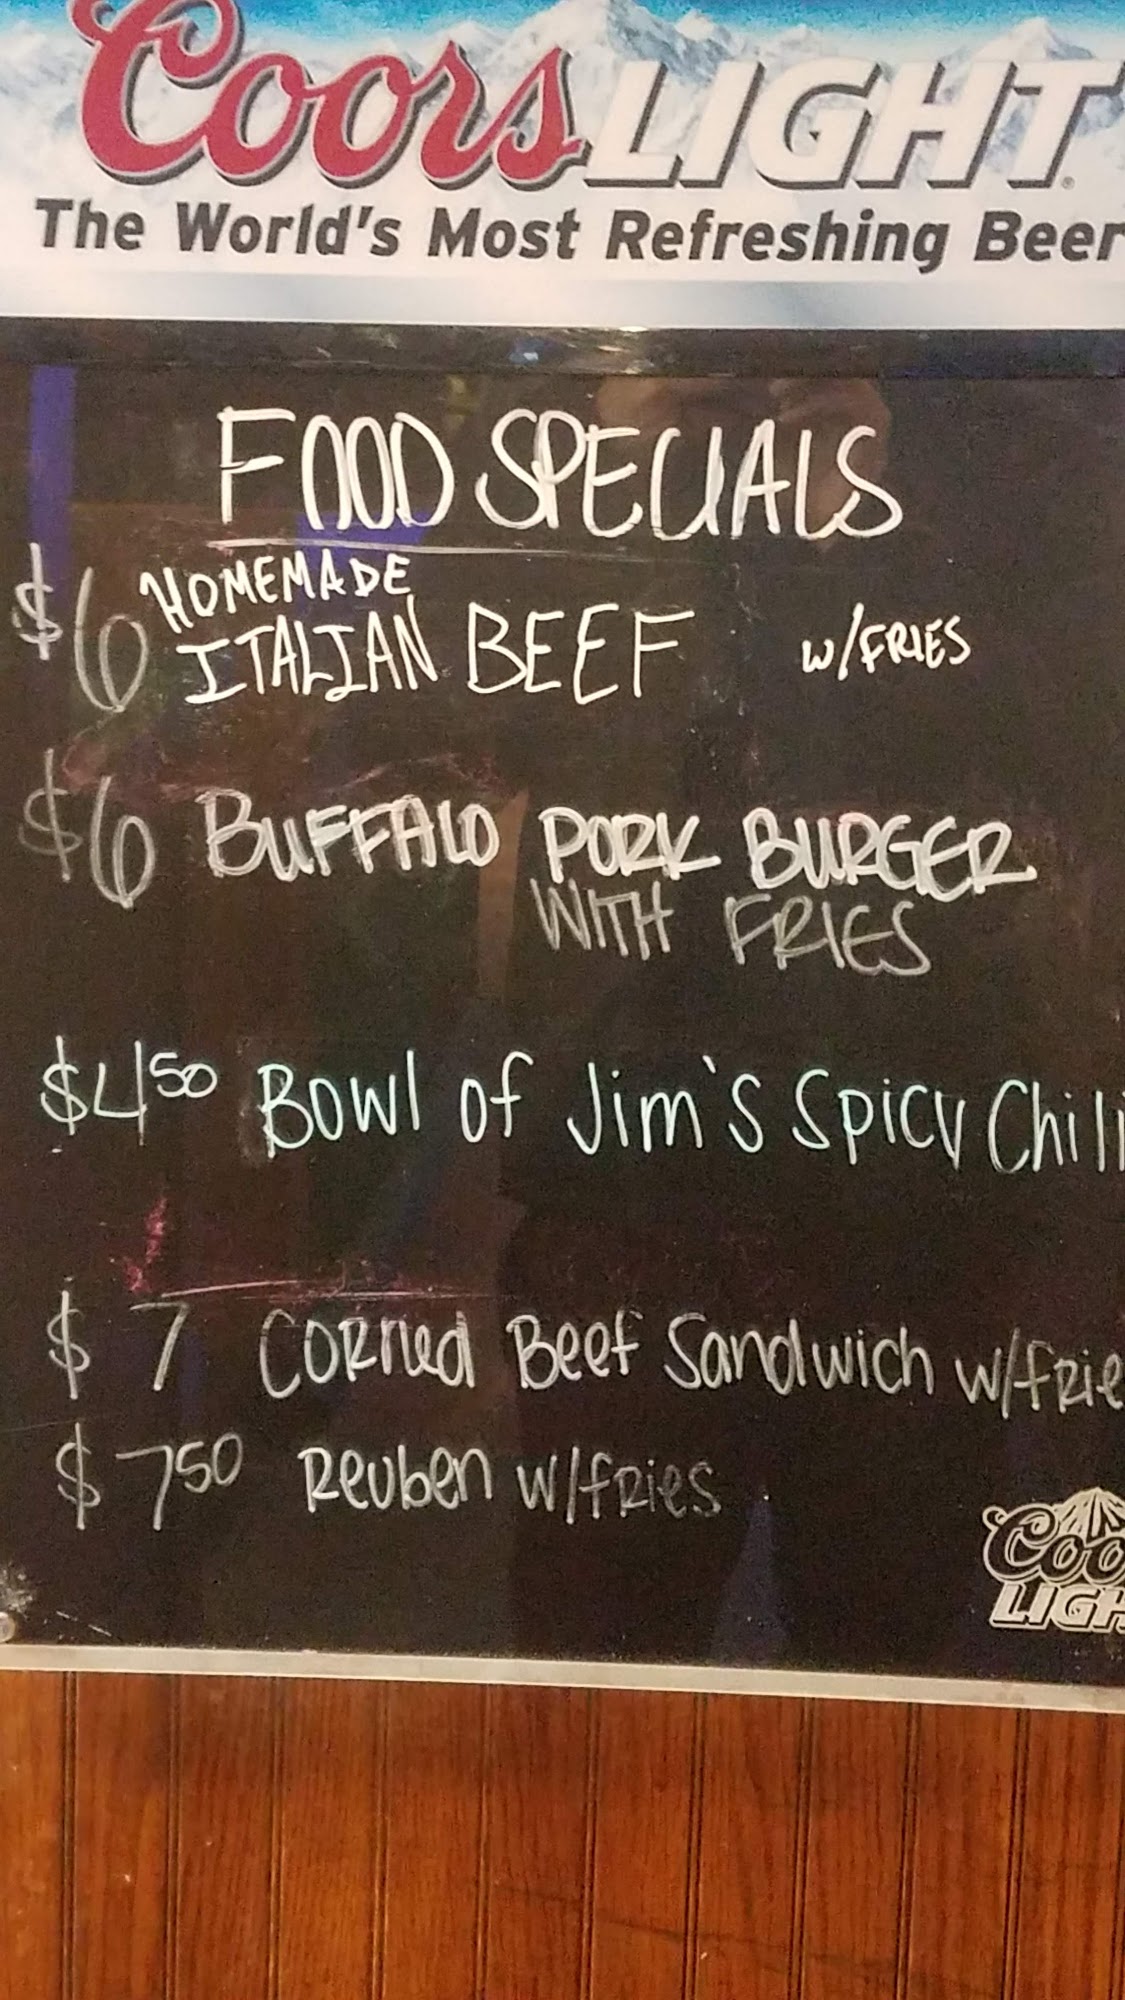 Coors LIGHT
The World's Most Refreshing Beer
FOOD SPECIALS
$6 HOMEMADE
ITALIAN BEEF w/FRIES
$6 BUFFALO PORK BURGER
WITH FRIES
$4 50 Bowl of Jim's Spicy Chili
$7 Corned Beef Sandwich w/frie
$7 50 Reuben w/fries
Coo
LIGH